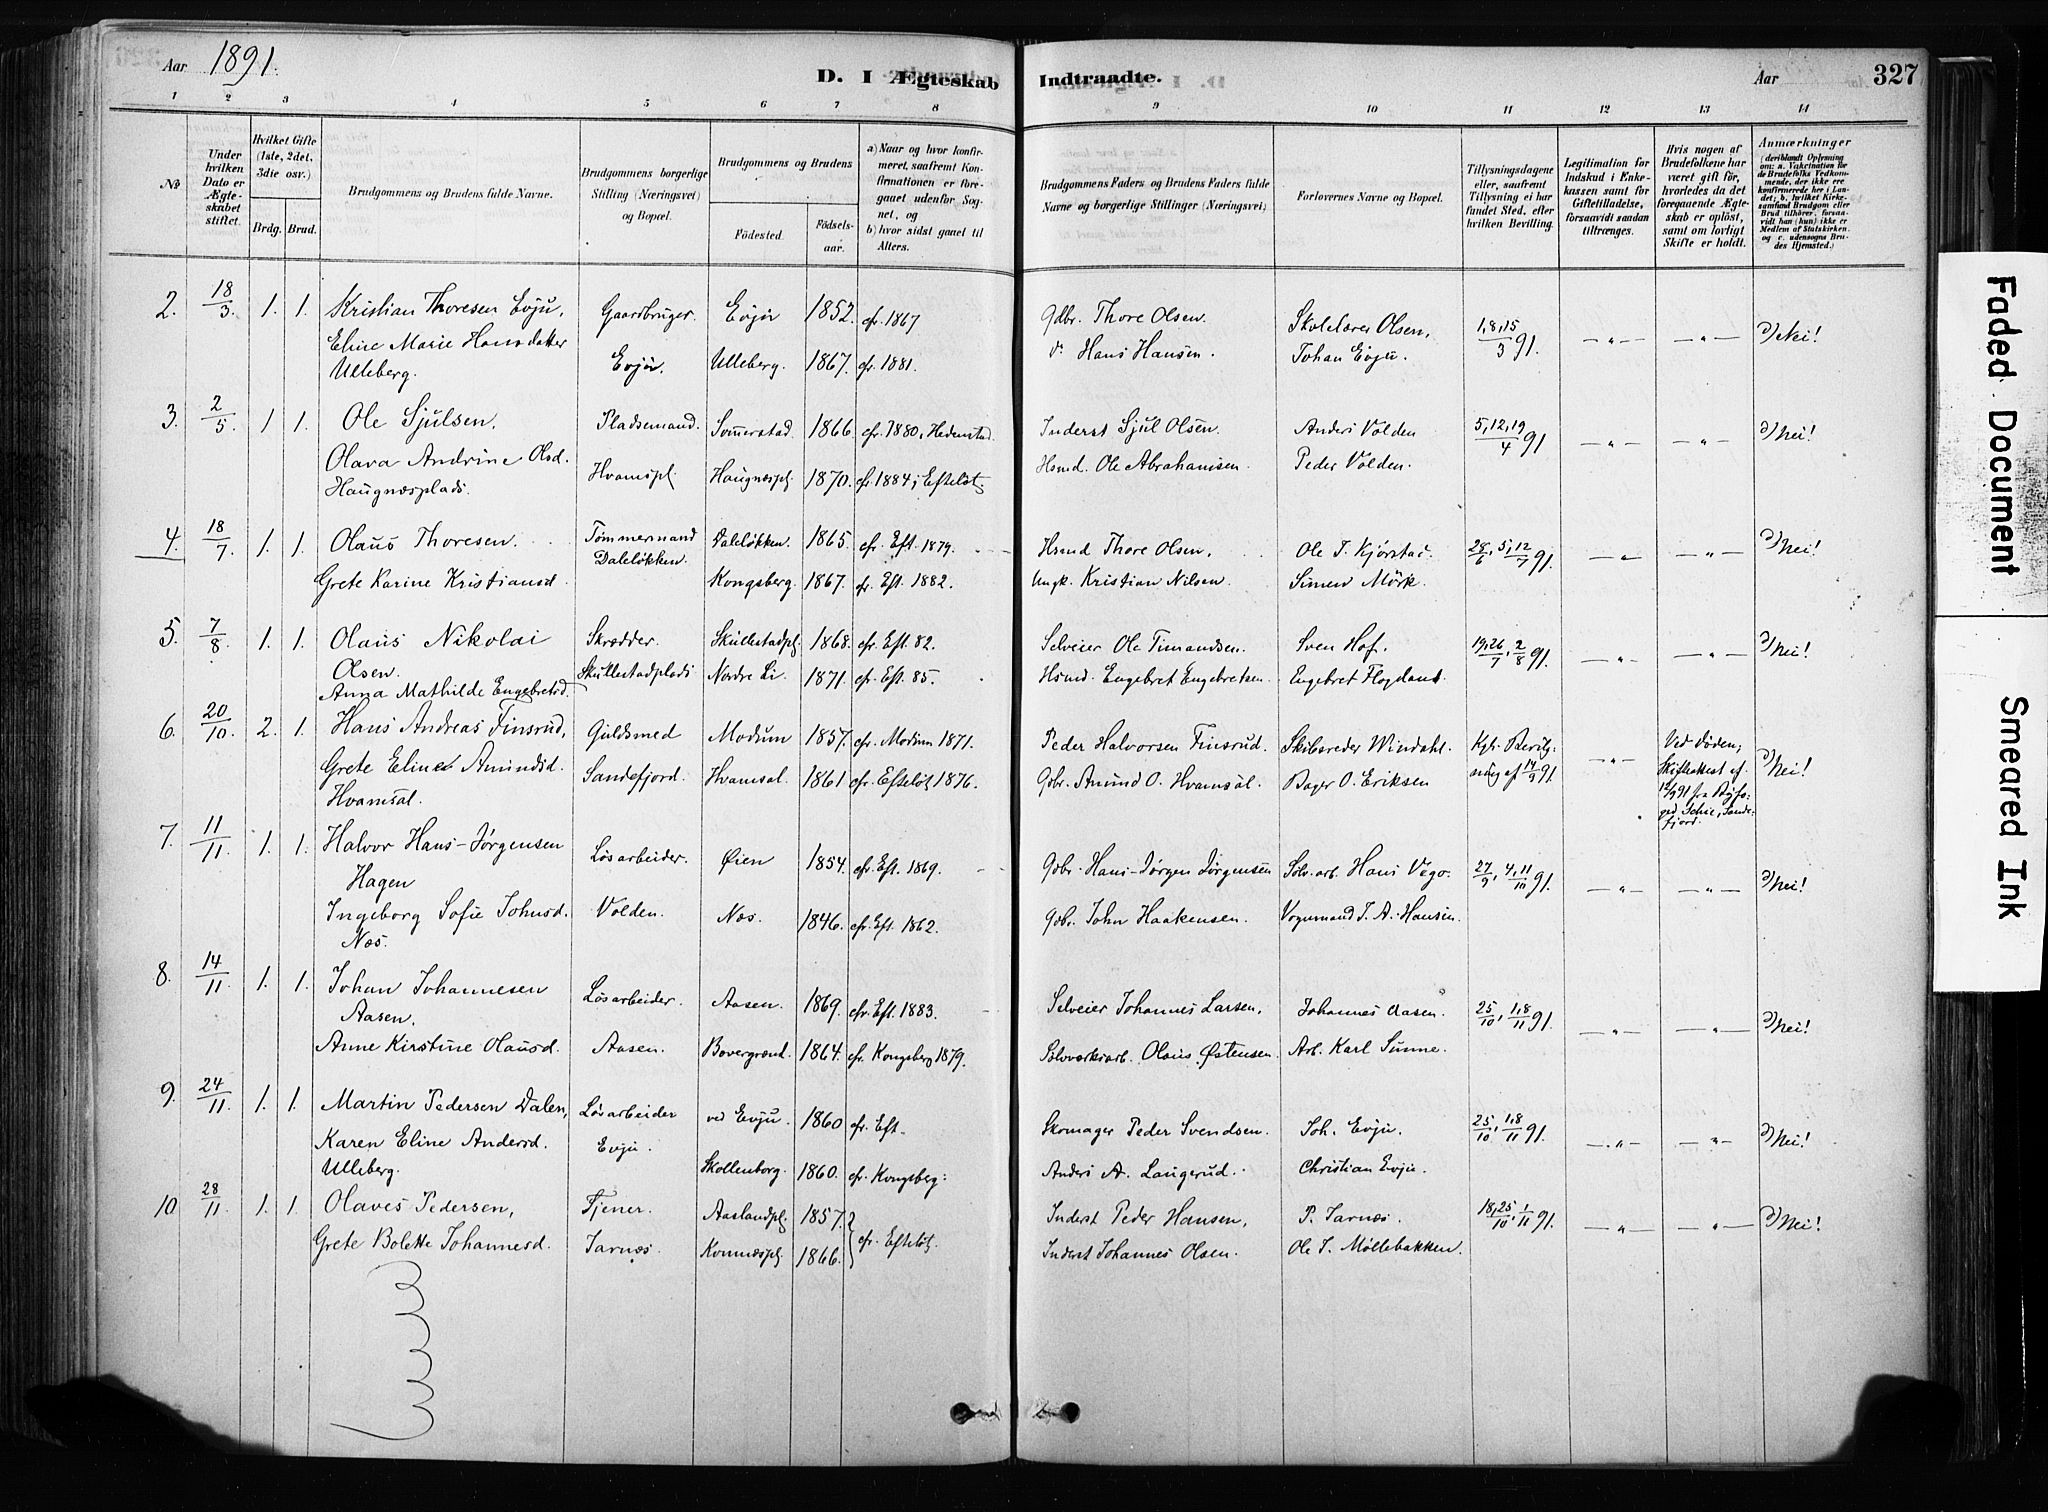 Aar 1891.
D. I Ægteskab Indtraadte.
Aar 327
1 2 3 4 5 6 7 8 9 10 11 12 13 14
No
Under hvilken Dato er Ægteskabet stiftet.
Hvilket Gifte (1ste, 2det, 3die osv.)
Brdg. Brud.
Brudgommens og Brudens fulde Navne.
Brudgommens borgerlige Stilling (Næringsvei) og Bopæl.
Brudgommens og Brudens
Fødested. Fødselsaar.
a) Naar og hvor konfirmeret, saafremt Konfirmationen er foregaaet udenfor Sognet, og
b) hvor sidst gaaet til Alters.
Brudgommens Faders og Brudens Faders fulde Navne og borgerlige Stillinger (Næringsvei)
Forlovernes Navne og Bopæl.
Tillysningsdagene eller, saafremt Tillysning ei har fundet Sted, efter hvilken Bevilling.
Legitimation for Indskud i Enkekassen samt for Giftetilladelse, forsaavidt saadan tiltrænges.
Hvis nogen af Brudefolkene har været gift før, hvorledes da det foregaaende Ægteskab er opløst, samt om lovligt Skifte er holdt.
Anmærkninger (deriblandt Oplysning om: a. Vakcination for de Brudefolks Vedkommende, der ikke ere konfirmerede her i Landet; b. hvilket Kirkesamfund Brudgom eller Brud tilhører, forsaavidt han (hun) ikke er Medlem af Statskirken, og c. udensogns Brudes Hjemsted.)
2. 18/3 1. 1. Kristian Thoresen Evju, Gaardbruger. Evju 1852. cfr. 1867 Gdbr. Thore Olsen. Skolelærer Olsen, 1,8,15/3 91. — „ — — „ — Nei!
Eline Marie Hansdatter Evju. Ulleberg. 1867. cfr. 1881. do Hans Hansen. Johan Evju.
Ulleberg.
3. 2/5. 1 1. Ole Sjulsen, Pladsemand. Somerstad. 1866. cfr. 1880, Hedenstad. Inderst Sjul Olsen. Anders Volden 5,12,19/4 91 — „ — — „ — Nei!
Olava Andrine Olsd. Hvamspl Haugnæspl. 1870. cfr. 1884, Efteløt. Hsmd. Ole Abrahamsen. Peder Volden.
Haugnæsplads.
4. 18/7. 1. 1. Olaus Thoresen. Tømmermand Daleløkken. 1865. cfr. Eft. 1879. Hsmd Thore Olsen, Ole T. Kjørstad. 28/6, 5,12/7 91. — „ — — „ — Nei!
Daleløkken.
Grete Karine Kristiansd. Kongsberg. 1867. cfr. Eft. 1882. Ungk. Kristian Nilsen. Simen Mörk.
5. 7/8. 1. 1. Olaus Nikolai Skrædder. Skullestadpl. 1868. cfr. Eft. 82. Selveier Ole Timandsen. Sven Hof. 19,26/7, 2/8 91. — „ — — „ — Nei!
Olsen. Skullestadplads Nordre Li. 1871. cfr. Eft. 85. Hsmd. Engebret Engebretsen. Engebret
Anna Mathilde Engebretsd.
6. 20/10. 2. 1. Hans Andreas Finsrud, Guldsmed Modum 1857. cfr. Modum 1871. Peder Halvorsen Finsrud. Skibsreder Windahl. Kgl. Bevilg- — „ — Ved Døden; Nei!
Grete Eline Amundsd. Sandefjord. Hvamsal. 1861 cfr. Efteløt 1876. Gdbr. Amund O. Hvamsal. Bager O. Eriksen ning af 14/9 91. Skifteattest af
Hvamsal. 12/9 91 fra Byfo-
ged Schie, Sande-
fjord.
7. 11/11. 1. 1. Halvor Hans-Jørgensen Løsarbeider. Øien 1854. cfr. Eft. 1869. Gdbr. Hans-Jørgen Jørgensen Sølv.arb. Hans Vego. 27/9, 4,11/10 91. — „ — — „ — Nei!
Hagen
Ingeborg Sofie Johnsd. Volden. Næs. 1846. cfr. Eft. 1862. Gdbr. John Haakensen. Vognmand J. A. Hansen.
Næs.
8. 14/11. 1. 1. Johan Johannesen Løsarbeider. Aasen. 1869. cfr. Eft. 1883. Selveier Johannes Larsen, Johannes Aasen. 25/10, 1,8/11 91. — „ — — „ — Nei!
Aasen.
Anne Kirstine Olausd. Aasen. Bovergrænd. 1864. cfr. Kongsberg 1879. Sølvverksarb. Olaus Østensen. Arb. Karl Sunne.
9. 24/11. 1. 1. Martin Pedersen Dalen, Løsarbeider ved Evju. 1860 cfr. Eft. Skomager Peder Svendsen. Joh. Evju. 25/10, 1,8/11 91. — „ — — „ — Nei!
Karen Eline Andersd. Evju. Skollenborg. 1860. cfr. Kongsberg. Anders A. Laugerud. Christian Evju.
Ulleberg.
10 28/11. 1. 1. Olaves Pedersen, Tjener. Aaslandpl. 1857. cfr. Efteløt. Inderst Peder Hansen, P. Jarnæs. 18,25/10, 1/11 91. — „ — — „ — Nei!
Grete Bolette Johannesd. Jarnæs. Kornnæspl. 1866. Inderst Johannes Olsen. Ole J. Møllebakken.
Faded Document
Smeared Ink